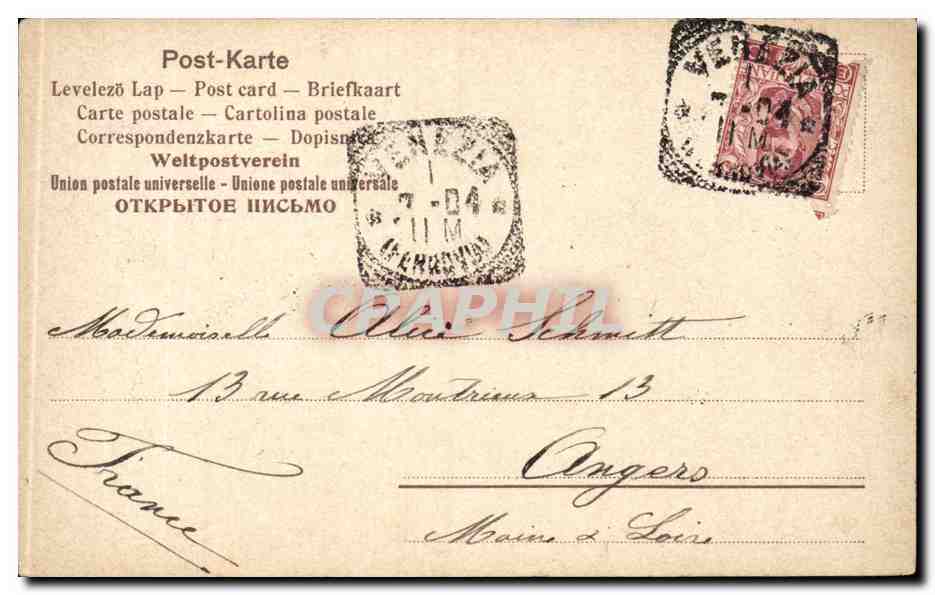 Post-Karte
Levelező Lap — Post card — Briefkaart
Carte postale — Cartolina postale
Correspondenzkarte — Dopisnica
Weltpostverein
Union postale universelle - Unione postale universale
ОТКРЫТОЕ ПИСЬМО
VENEZIA
1
7 - 04
11 M
(FERROVIA)
VENEZIA
1
7 - 04
11 M
CPAPHIL
Mademoiselle Alice Schmitt
13 rue 13
Angers
Maine & Loire
France